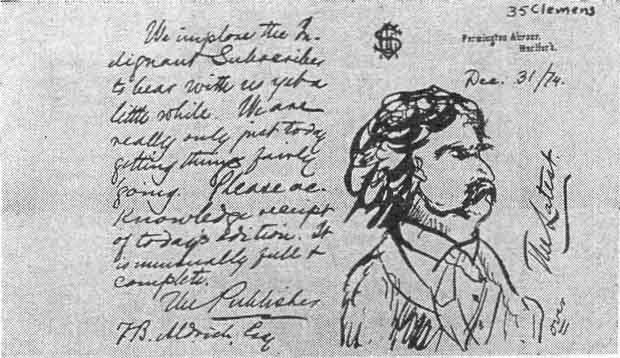 35 Clemens
Farmington Avenue,
Hartford.
Dec. 31/74.
We implore the In-
dignant Subscriber
to bear with us yet a
little while. We are
really only just today
getting things fairly
going. Please ac-
knowledge receipt
of today's edition. It
is unusually full &
complete.
The Publisher
T. B. Aldrich, Esq
The Latest